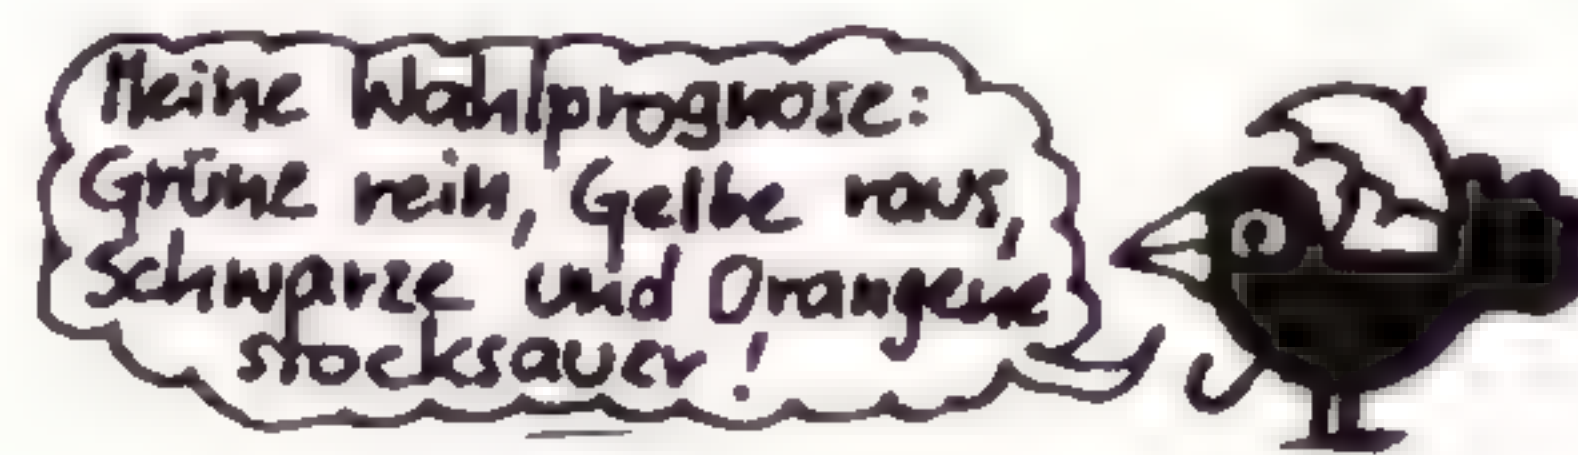 Meine Wahlprognose:
Grüne rein, Gelbe raus,
Schwarze und Orangene
stocksauer!